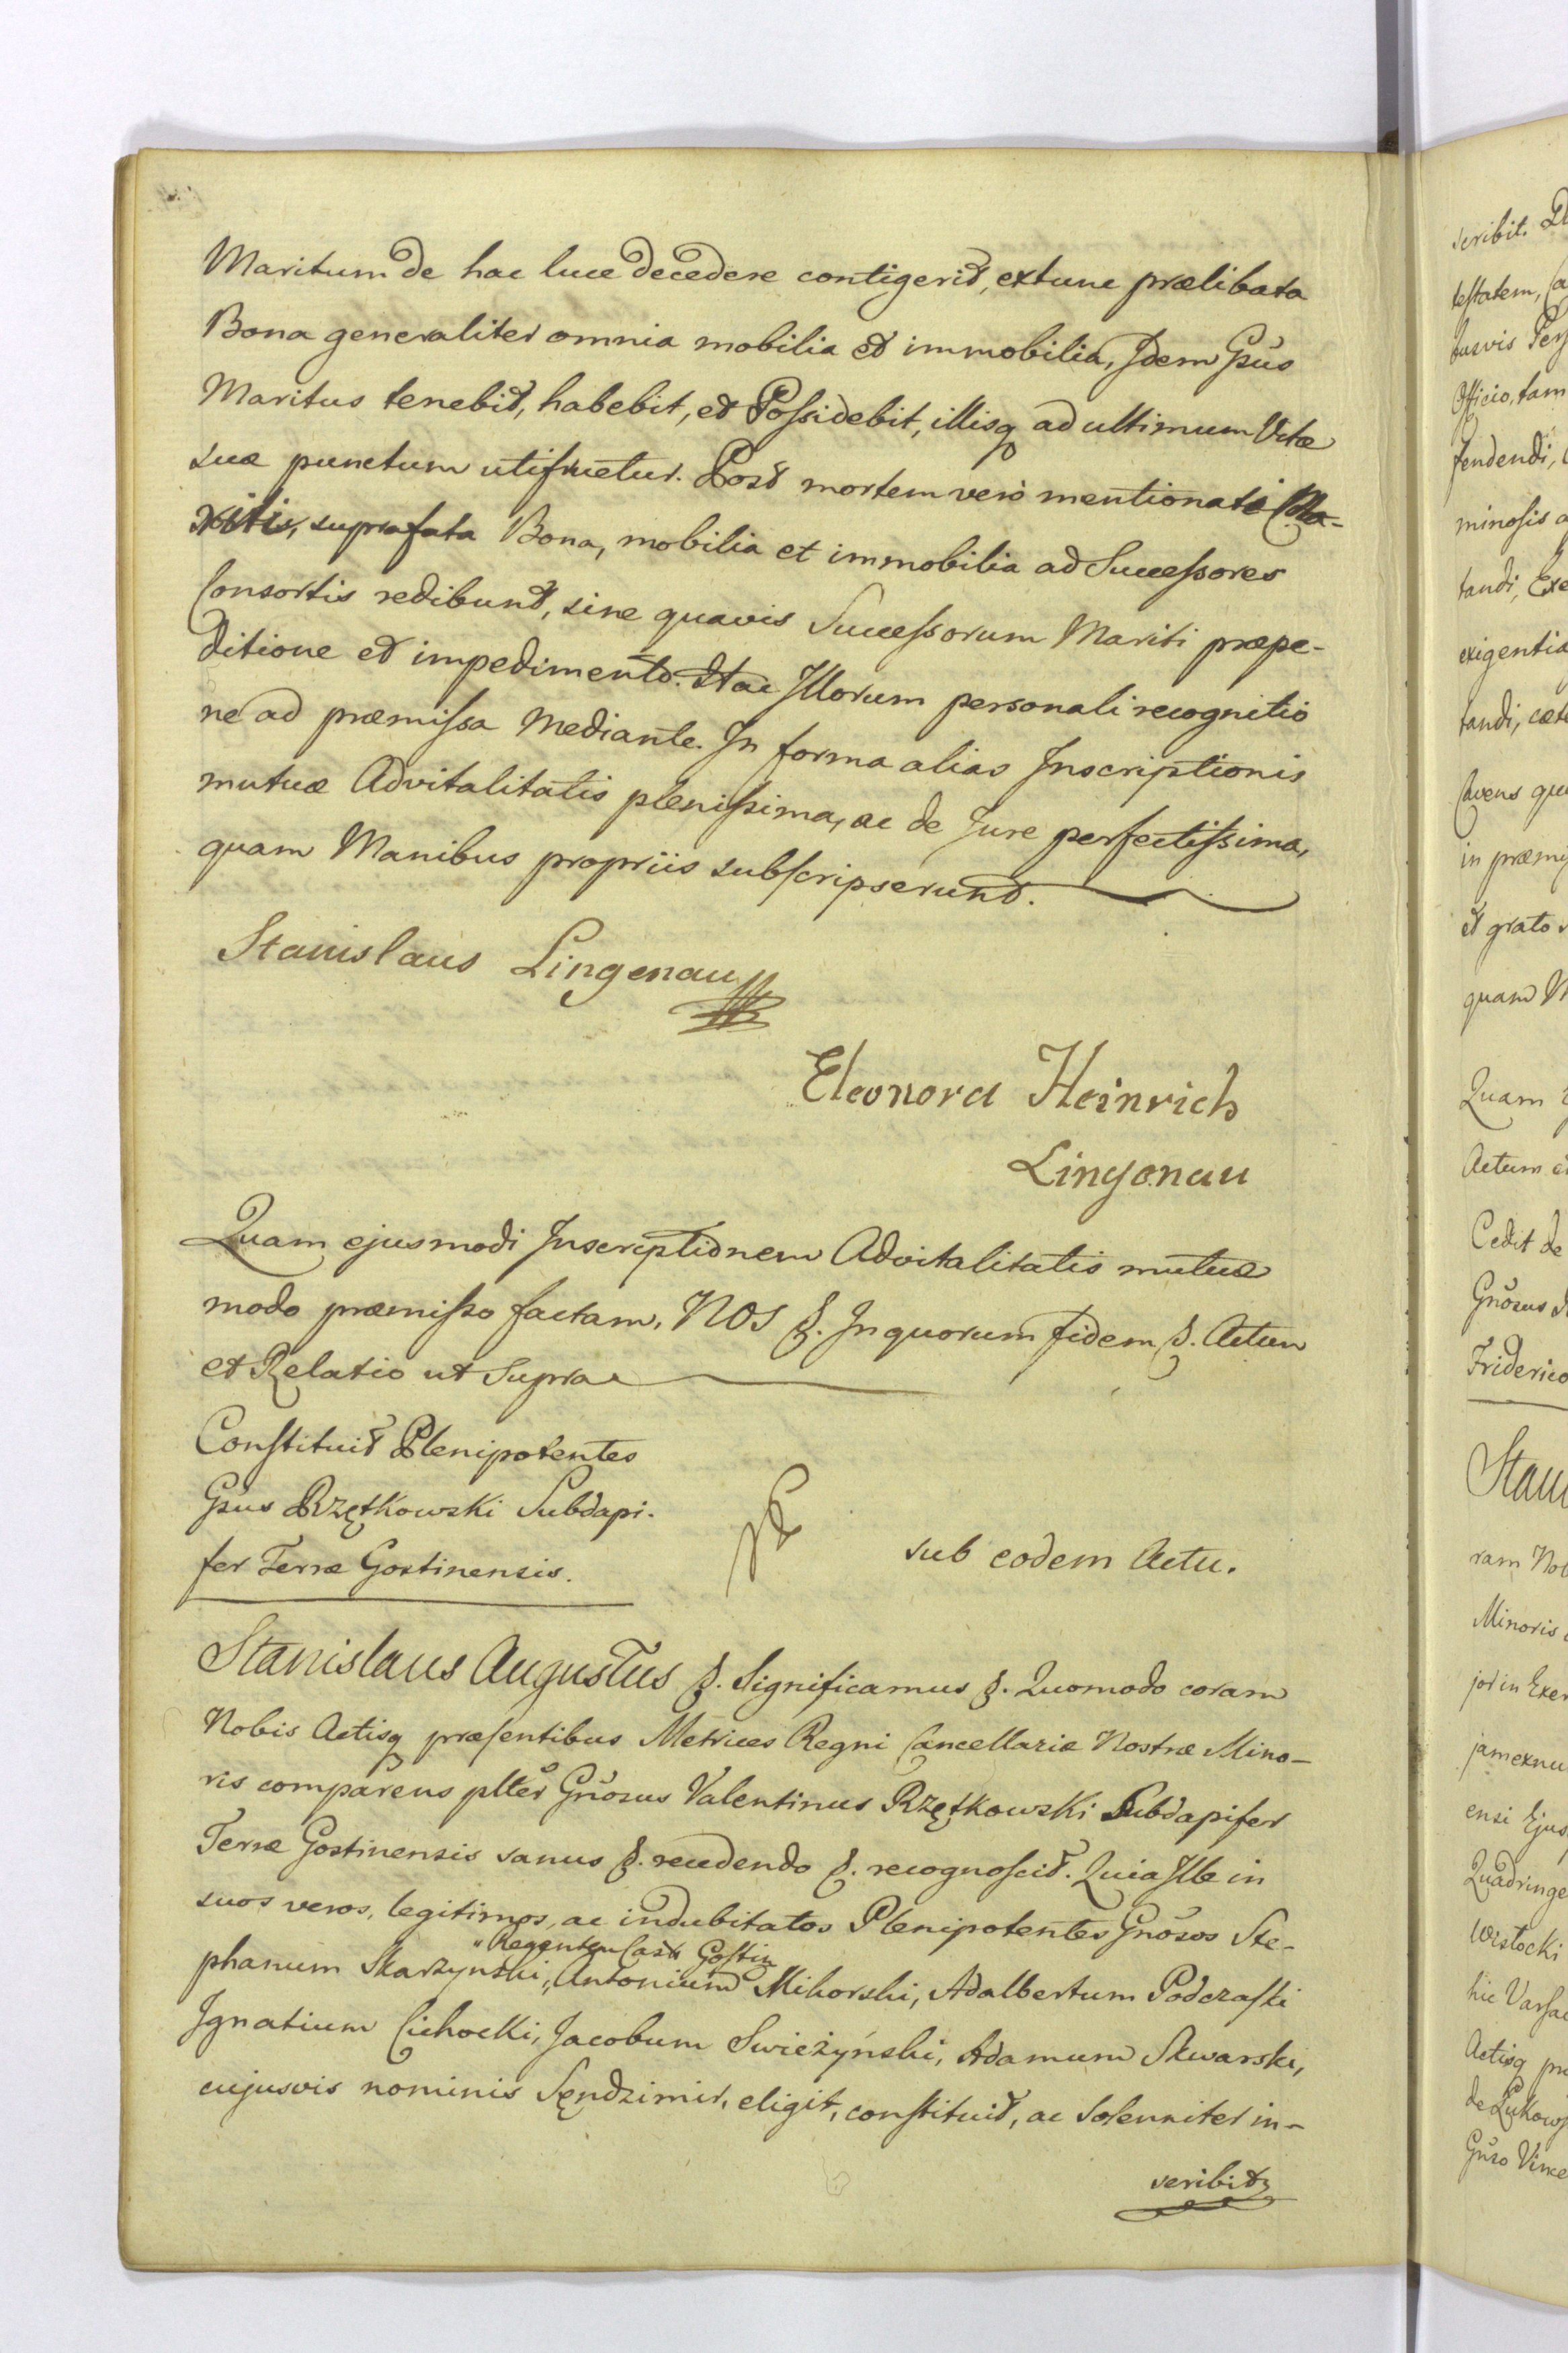 Maritum de hac luce decedere contigerit, extunc prælibata
Bona generaliter omnia mobilia et immobilia, Idem Gsus
Maritus tenebit, habebit, et Poſsidebit, illisq ad ultimum Vitæ
suæ punctum utifruetur. Post mortem verò mentionati Ma-
riti, suprafata Bona, mobilia et immobilia ad Succeſsores
Consortis redibunt, sine quavis Succeſsorum Mariti præpe-
ditione et impedimento. Hac Illorum personali recognitio
ne ad præmiſsa Mediante. In forma alias Inscriptionis
mutuæ Advitalitatis pleniſsima, ac de Jure perfectiſsima,
quam Manibus propriis subſcripserunt.
Stanislaus Lingenau
Eleonora Heinrich
Lingenau
Quam ejusmodi Inscriptionem Advitalitatis mutuæ
modo præmiſso factam, NOS &. In quorum fidem &. Actum
et Relatio ut Supra
Conſtituit Plenipotentes
Gsus Rzętkowski Subdapi-
fer Terræ Gostinensis.
sub eodem Actu.
Stanislaus Augustus &. Significamus &. Quomodo coram
Nobis Actisq præſentibus Metrices Regni Cancellariæ Nostræ Mino-
ris comparens plter Gnosus Valentinus Rzętkowski Subdapifer
Terræ Gostinensis sanus &. recedendo &. recognoſcit. Quia Ille in
suos veros, legitimos, ac indubitatos Plenipotentes Gnosos Ste-
"Regentem Castr Goſtin
phanum Skarzynski, "Antonium Mikorski, Adalbertum Podczaſki
Ignatium Cichocki, Jacobum Swieżyński, Adamum Skwarski,
cujusvis nominis Sędzimir, eligit, conſtituit, ac Solenniter in-
scribit
scribit.
teſtatem,
Officio, tam
fendendi,
minoſis
tandi,
exigentia
tandi,
Cavens
in præmi
et grato
quam
Quam
Actum
Cedit de
Gnosus
Friderico
Stani
ram
Minoris
jor in
jam
ensi Ejus
Quadringe
hic Varſa
Actisq
Gnso Vince